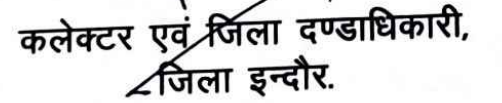 कलेक्टर एवं जिला दण्डाधिकारी,
जिला इन्दौर.